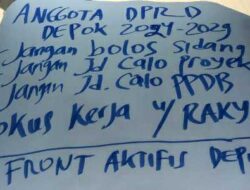 ANGGOTA DPRD
DEPOK 2024-2029
Jangan bolos Sidang
Jangan Jd Calo Proyek
Jangan Jd. Calo PPDB
OKUS Kerja U/ RAKY
FRONT AKTIFIS DEP